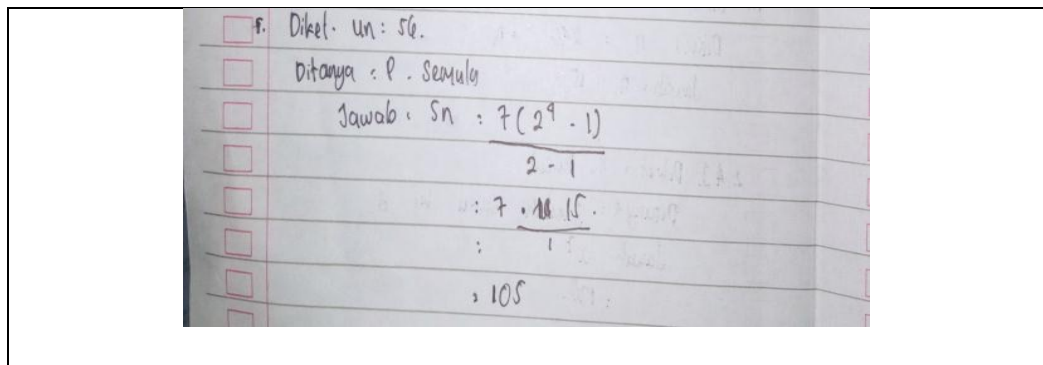 5. Diket. Un : 56.
Ditanya : P. Semula
Jawab : Sn : 7(2⁴ - 1)
2 - 1
: 7 . 15.
: 1
: 105